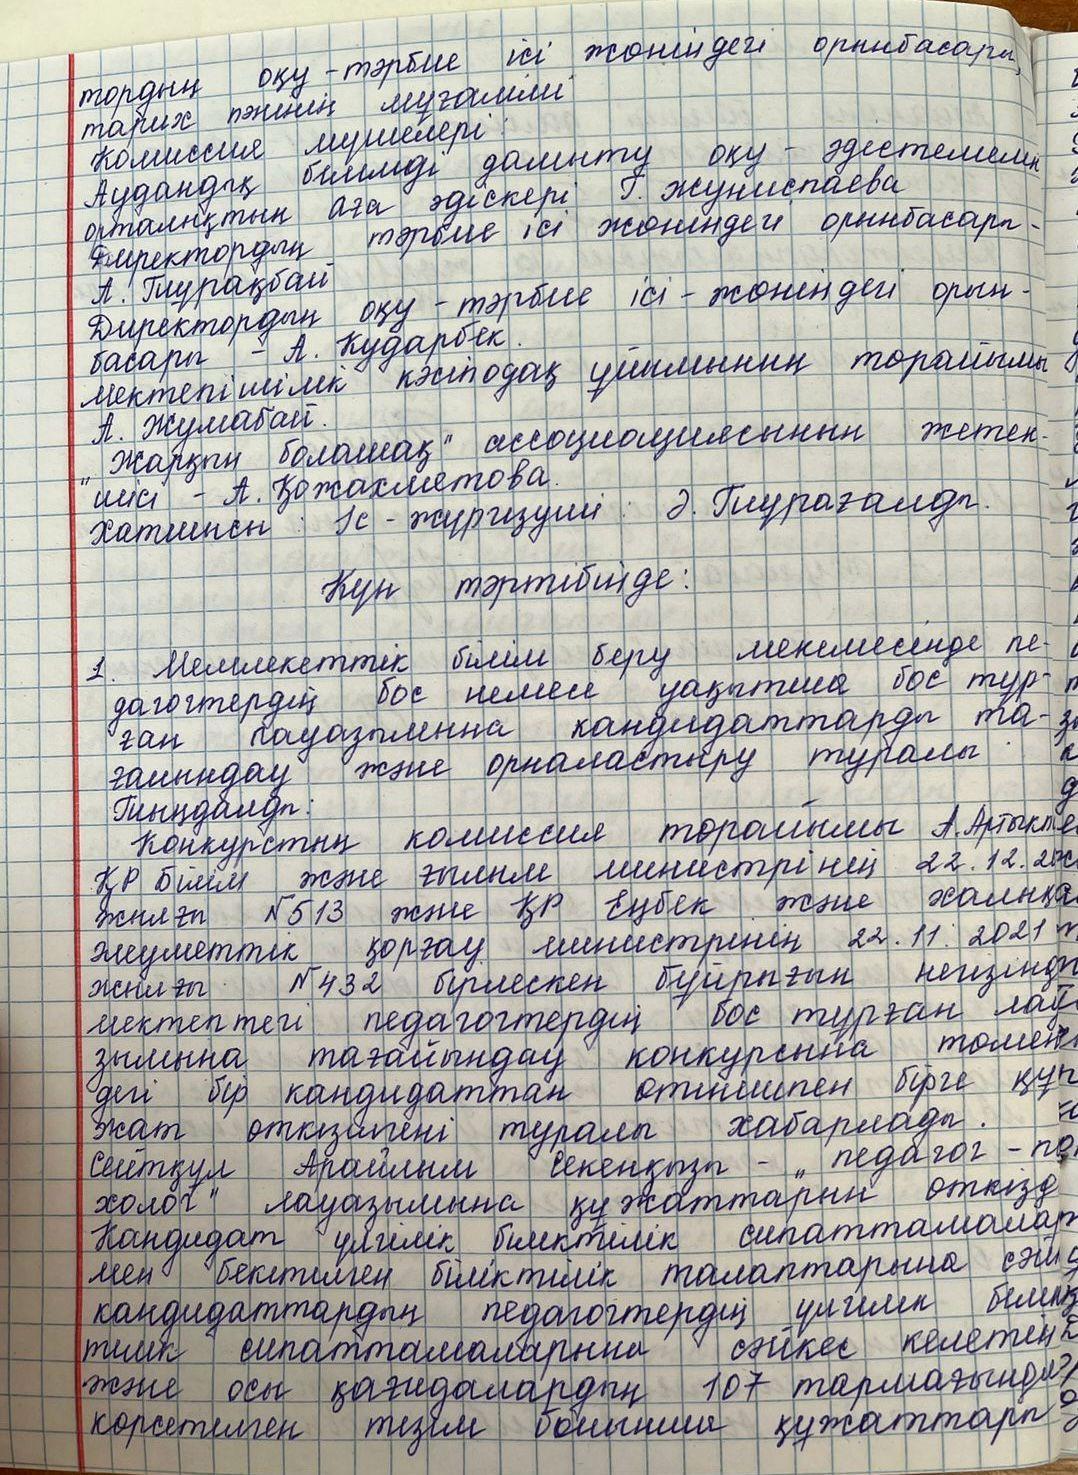 тордың оқу-тәрбие ісі жөніндегі орынбасары,
тарих пәнінің мұғалімі
Комиссия мүшелері:
Аудандық білімді дамыту оқу-әдістемелік
орталықтың аға әдіскері Г. Жуниспаева
Директордың тәрбие ісі жөніндегі орынбасары -
А. Тұрақбай
Директордың оқу-тәрбие ісі-жөніндегі орын-
басары - А. Құдарбек.
Мектепішілік кәсіподақ ұйымының торайымы
А. Жумабай.
"Жарқын болашақ" ассоциациясынын жетек-
шісі - А. Қожахметова.
Хатшысы: Іс-жүргізуші: Ә. Тұрағалды.
Күн тәртібінде:
1. Мемлекеттік білім беру мекемесінде пе-
дагогтердің бос немесе уақытша бос тұр-
ған лауазымына кандидаттарды та-
ғайындау және орналастыру туралы
Тыңдалды:
Конкурстың комиссия торайымы А.Артык
ҚР Білім және ғылым министрінің 22.12.
жылғы №513 және ҚР Еңбек және халықа
әлеуметтік қорғау министрінің 22.11.2021
жылғы №432 бірлескен бұйрығын негізінде
мектептегі педагогтердің бос тұрған лауа
зымына тағайындау конкурсына томен
дегі бір кандидаттан отінішпен бірге құ
жат откізілгені туралы хабарлады.
Сейтқул Арайлым Секенқызы - "педагог-пси
холог" лауазымына құжаттарын откізд
Кандидат үлгілік біліктілік сипаттамалар
мен бекітілген біліктілік талаптарына сәй
кандидаттардың педагогтердің үлгілік білік
тілік сипаттамаларына сәйкес келетін
және осы қағидалардың 107 тармағында
көрсетілген тізім бойынша құжаттары